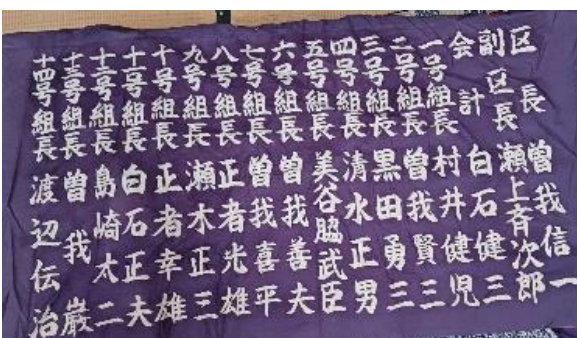 区長 曽我信一
副区長 瀬上斉次郎
会計 白石健三
一号組長 村井健児
二号組長 曽我賢三
三号組長 黒田勇三
四号組長 清水正男
五号組長 美谷脇武臣
六号組長 曽我善夫
七号組長 曽我喜平
八号組長 正者光雄
九号組長 瀬木正三
十号組長 正者幸雄
十一号組長 白石正夫
十二号組長 島崎太二
十三号組長 曽我巌
十四号組長 渡辺伝治